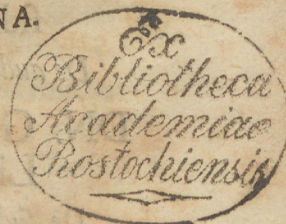 NA.
Ex
Bibliotheca
Academiae
Rostochiensis